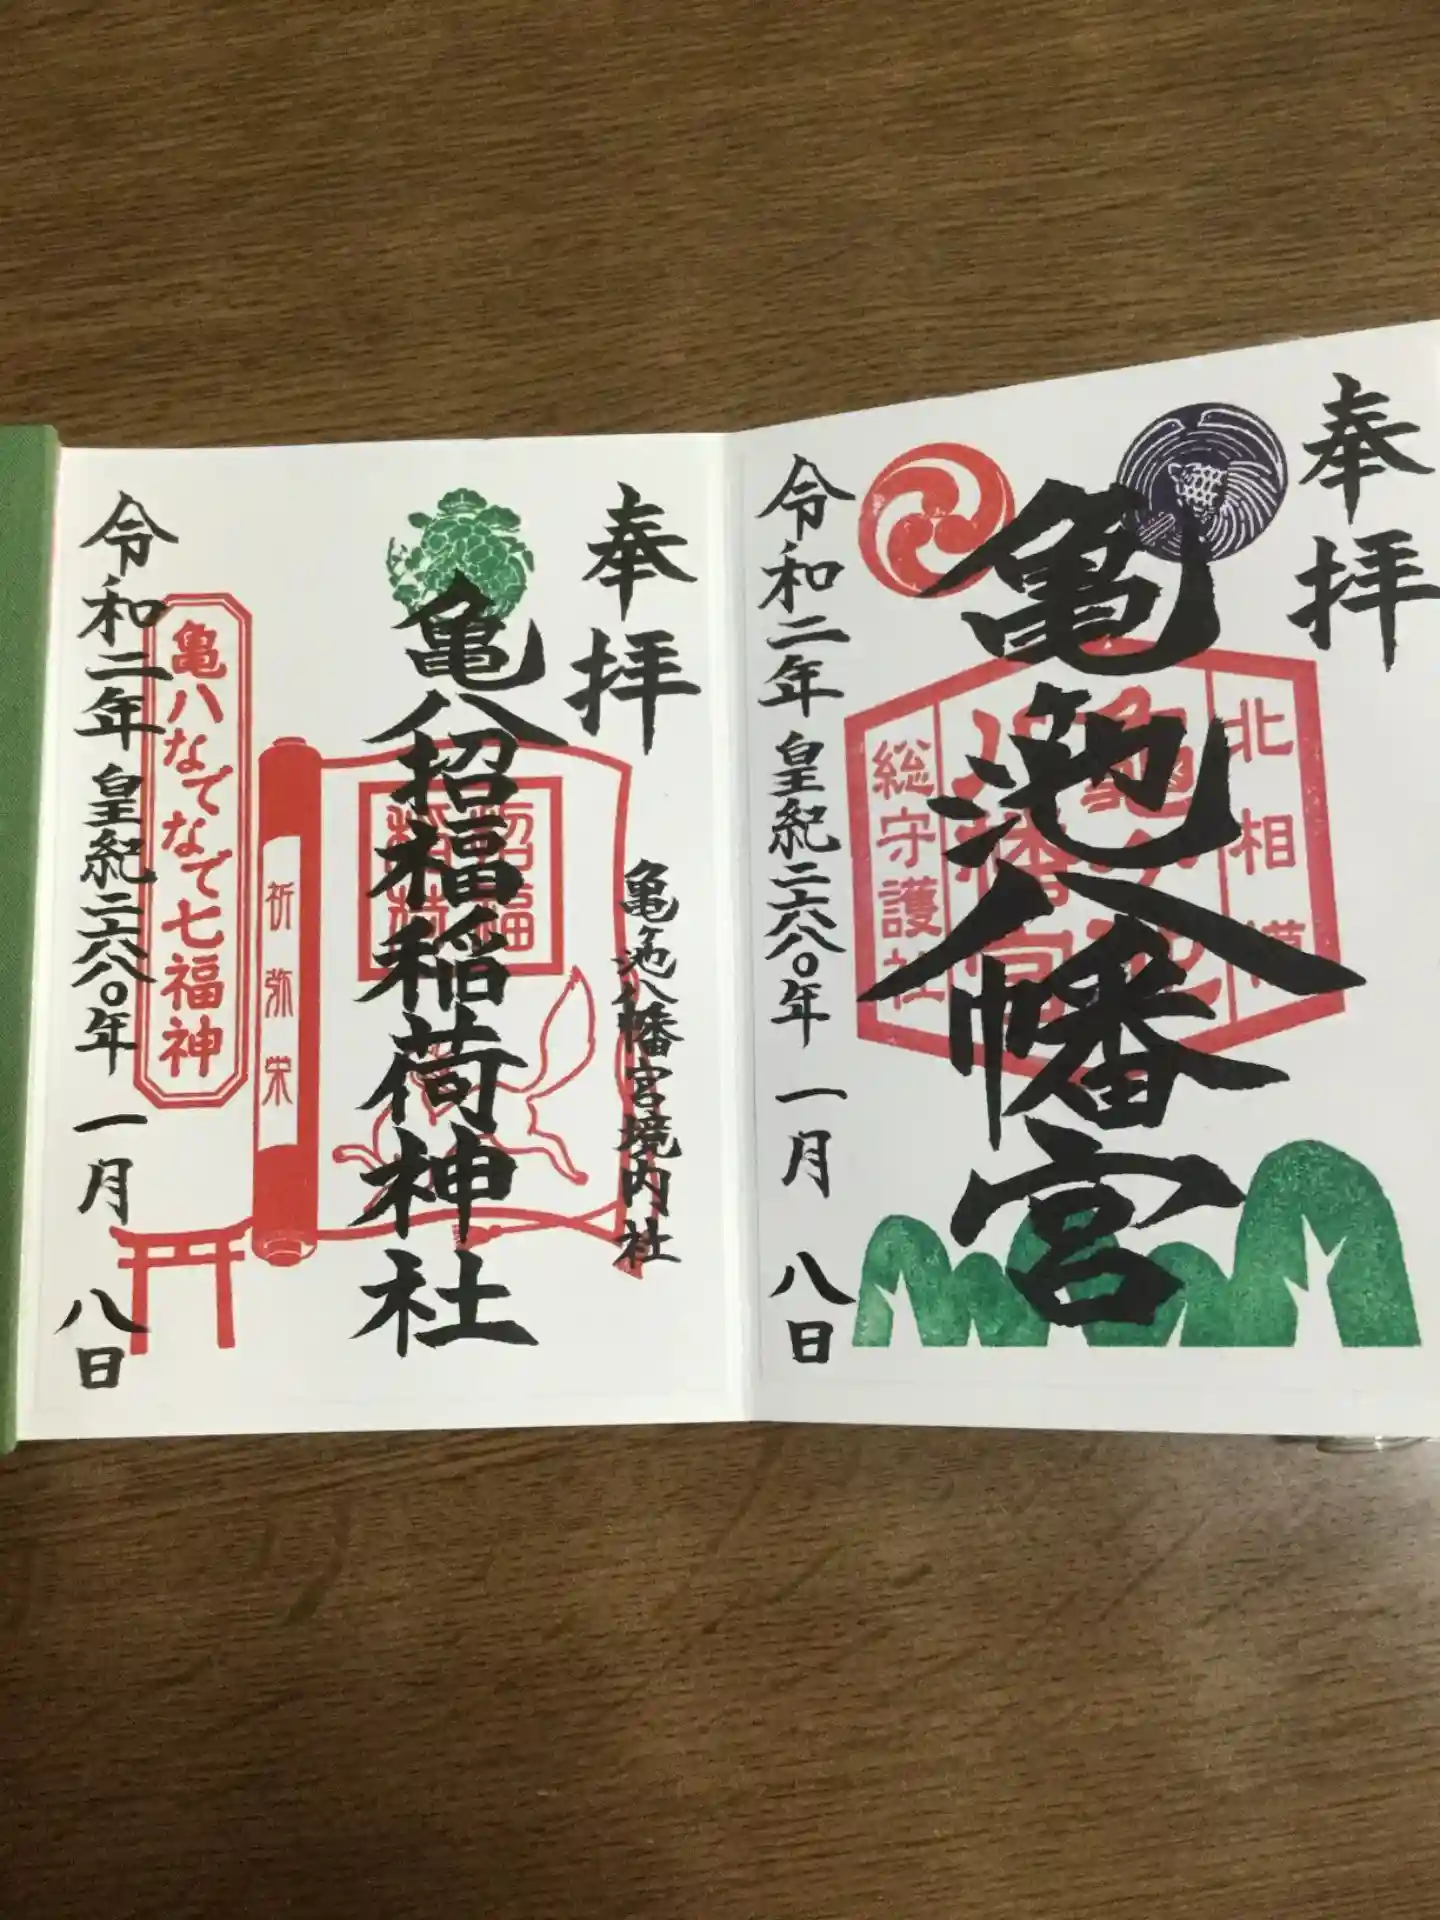 奉拝
亀ヶ池八幡宮
北相模
亀ヶ池
八幡宮
総守護社
令和二年 皇紀二六八〇年 一月 八日
奉拝
亀ヶ池八幡宮境内社
亀八招福稲荷神社
招福
稲荷
祈弥栄
亀八なでなで七福神
令和二年 皇紀二六八〇年 一月 八日